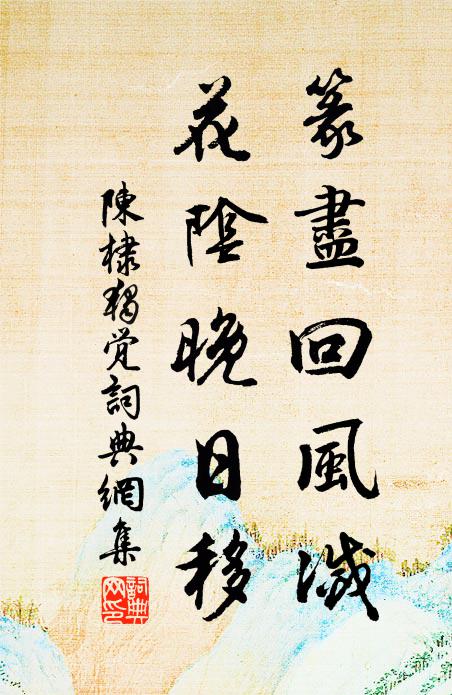 篆盡回風滅
花陰晚日移
陳棣獨覺詞典網集